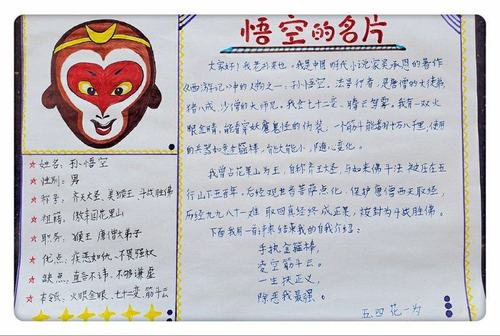 悟空的名片
姓名:孙悟空
性别:男
称号:齐天大圣、美猴王、斗战胜佛
祖籍:傲来国花果山
职务:猴王、唐僧大弟子
优点:疾恶如仇、不畏强权
缺点:直言不讳、不够谦虚
本领:火眼金眼、七十二变、筋斗云
大家好!我是孙悟空,我是中国明代小说家吴承恩的著作
《西游记》中的人物之一。孙悟空,法号行者,是唐僧的大徒弟,
猪八戒、沙僧的大师兄。我会七十二变、腾云驾雾。我有一双火
眼金睛,能看穿妖魔鬼怪的伪装,一个筋斗能翻十万八千里,使用
的兵器如意金箍棒,能大能小,随心变化。
我曾占花果山为王,自称齐天大圣,与如来佛斗法,被压在五
行山下五百年,后经观世音菩萨点化,保护唐僧西天取经,
历经九九八十一难,取回真经终成正果,被封为斗战胜佛。
下面我用一首诗来结束我的自我介绍:
手执金箍棒,
凌空筋斗云。
一生扶正义,
除恶我最强。
五、四 花一为